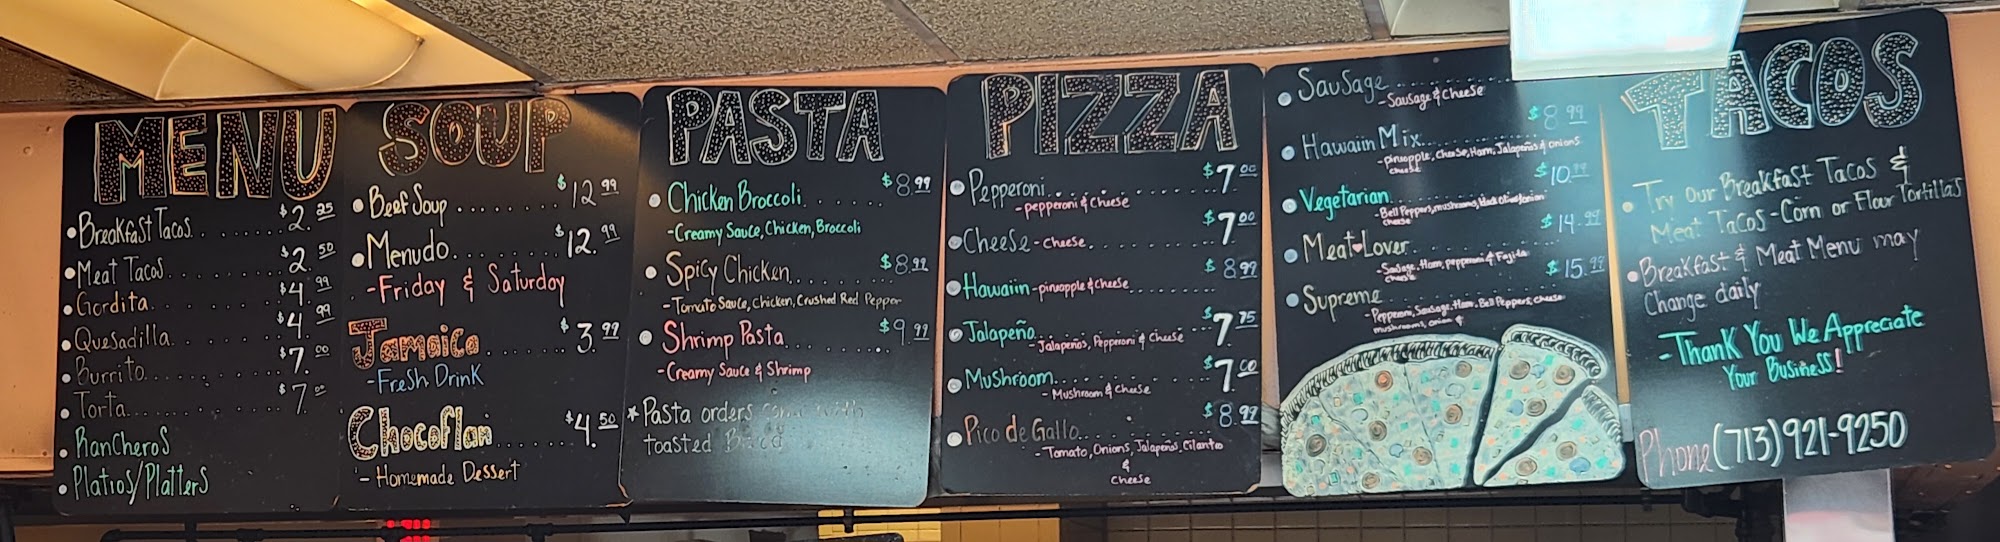 MENU
Breakfast Tacos $2.25
Meat Tacos $2.50
Gordita $4.99
Quesadilla $4.99
Burrito $7.00
Torta $7.00
RanCheroS
Platios/Platters
SOUP
Beef Soup $12.99
Menudo $12.99
-Friday & Saturday
Jamaica $3.99
-Fresh Drink
Chocoflan $4.50
- Homemade Dessert
PASTA
Chicken Broccoli $8.99
-Creamy Sauce, Chicken, Broccoli
Spicy Chicken $8.99
-Tomato Sauce, Chicken, Crushed Red Pepper
Shrimp Pasta $9.99
-Creamy Sauce & Shrimp
*Pasta orders come with
toasted Bread
PIZZA
Pepperoni $7.00
-pepperoni & cheese
Cheese -cheese $7.00
Hawaiin -pineapple & cheese $8.99
Jalapeño $7.75
-Jalapeños, Pepperoni & Cheese
Mushroom $7.00
- Mushroom & cheese
Pico de Gallo $8.99
- Tomato, Onions, Jalapeños, Cilantro
&
Cheese
Sausage
-Sausage & Cheese
$8.99
Hawaiin Mix
-pineapple, cheese, Ham, Jalapeños & onions
cheese
$10.99
Vegetarian
-Bell Peppers, mushrooms, black olives, onion
cheese
$14.99
Meat Lover
-Sausage, Ham, pepperoni & Fajida
cheese
$15.99
Supreme
-Pepperoni, Sausage, Ham, Bell Peppers, cheese
mushrooms, onion &
TACOS
Try our Breakfast Tacos &
Meat Tacos-Corn or Flour Tortillas
Breakfast & Meat Menu may
Change daily
-Thank You We Appreciate
Your Business!
Phone (713)921-9250